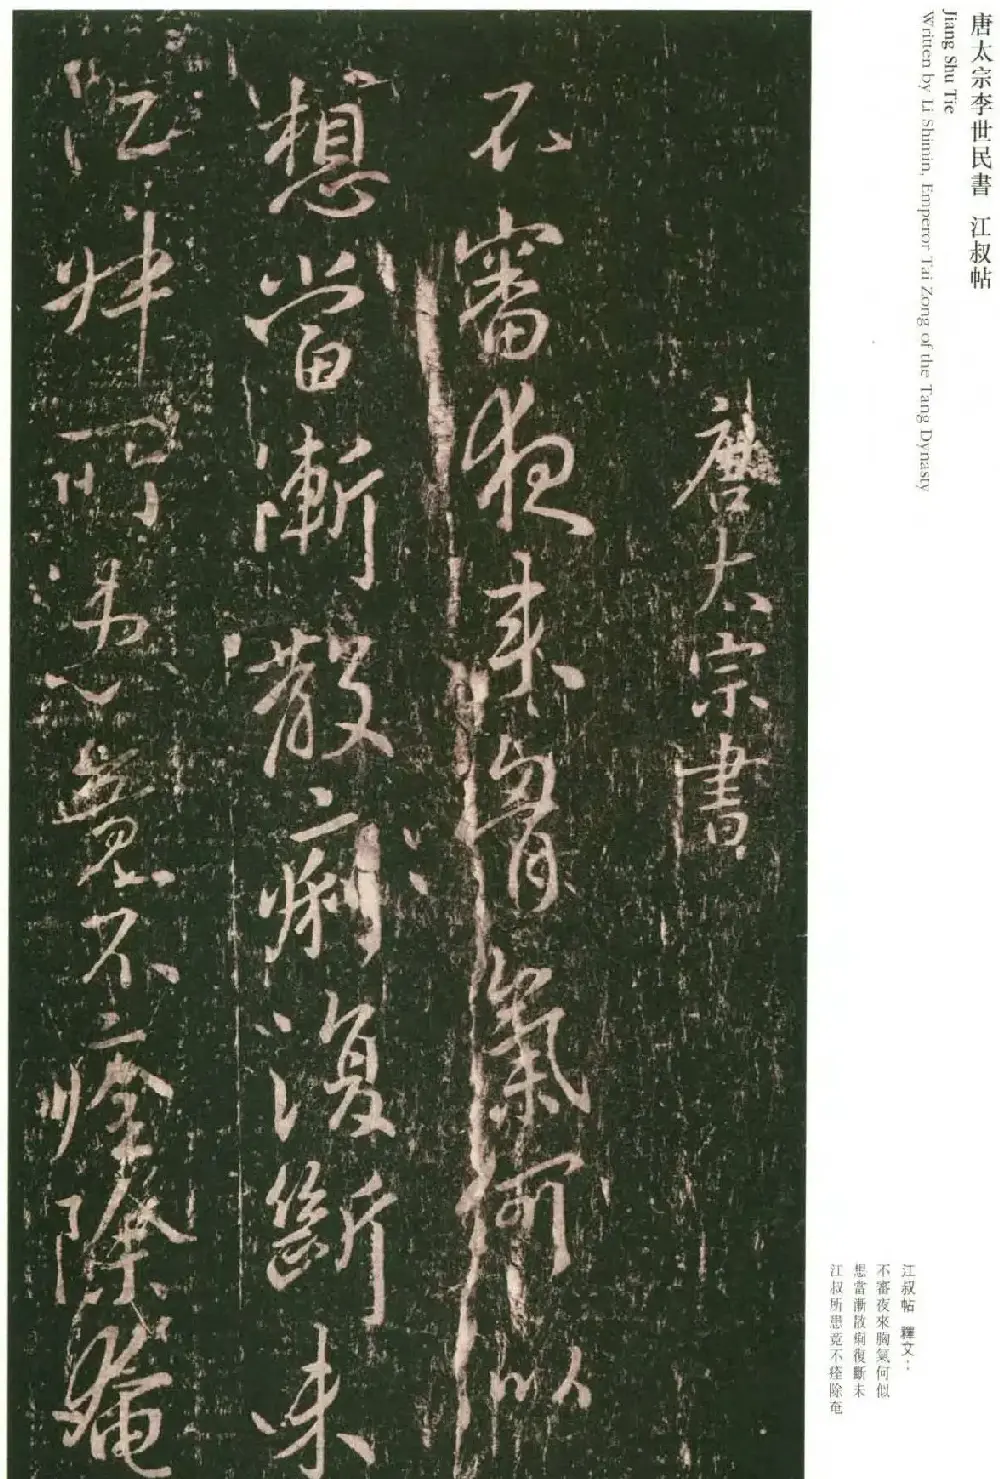 唐太宗李世民書 江叔帖
Jiang Shu Tie
Written by Li Shimin, Emperor Tai Zong of the Tang Dynasty
唐太宗書
不審夜来胷氣何以
想當漸散痢復斷未
江叔所患竟不痊除奄
江叔帖 釋文：
不審夜來胸氣何似
想當漸散痢復斷未
江叔所患竟不痊除奄